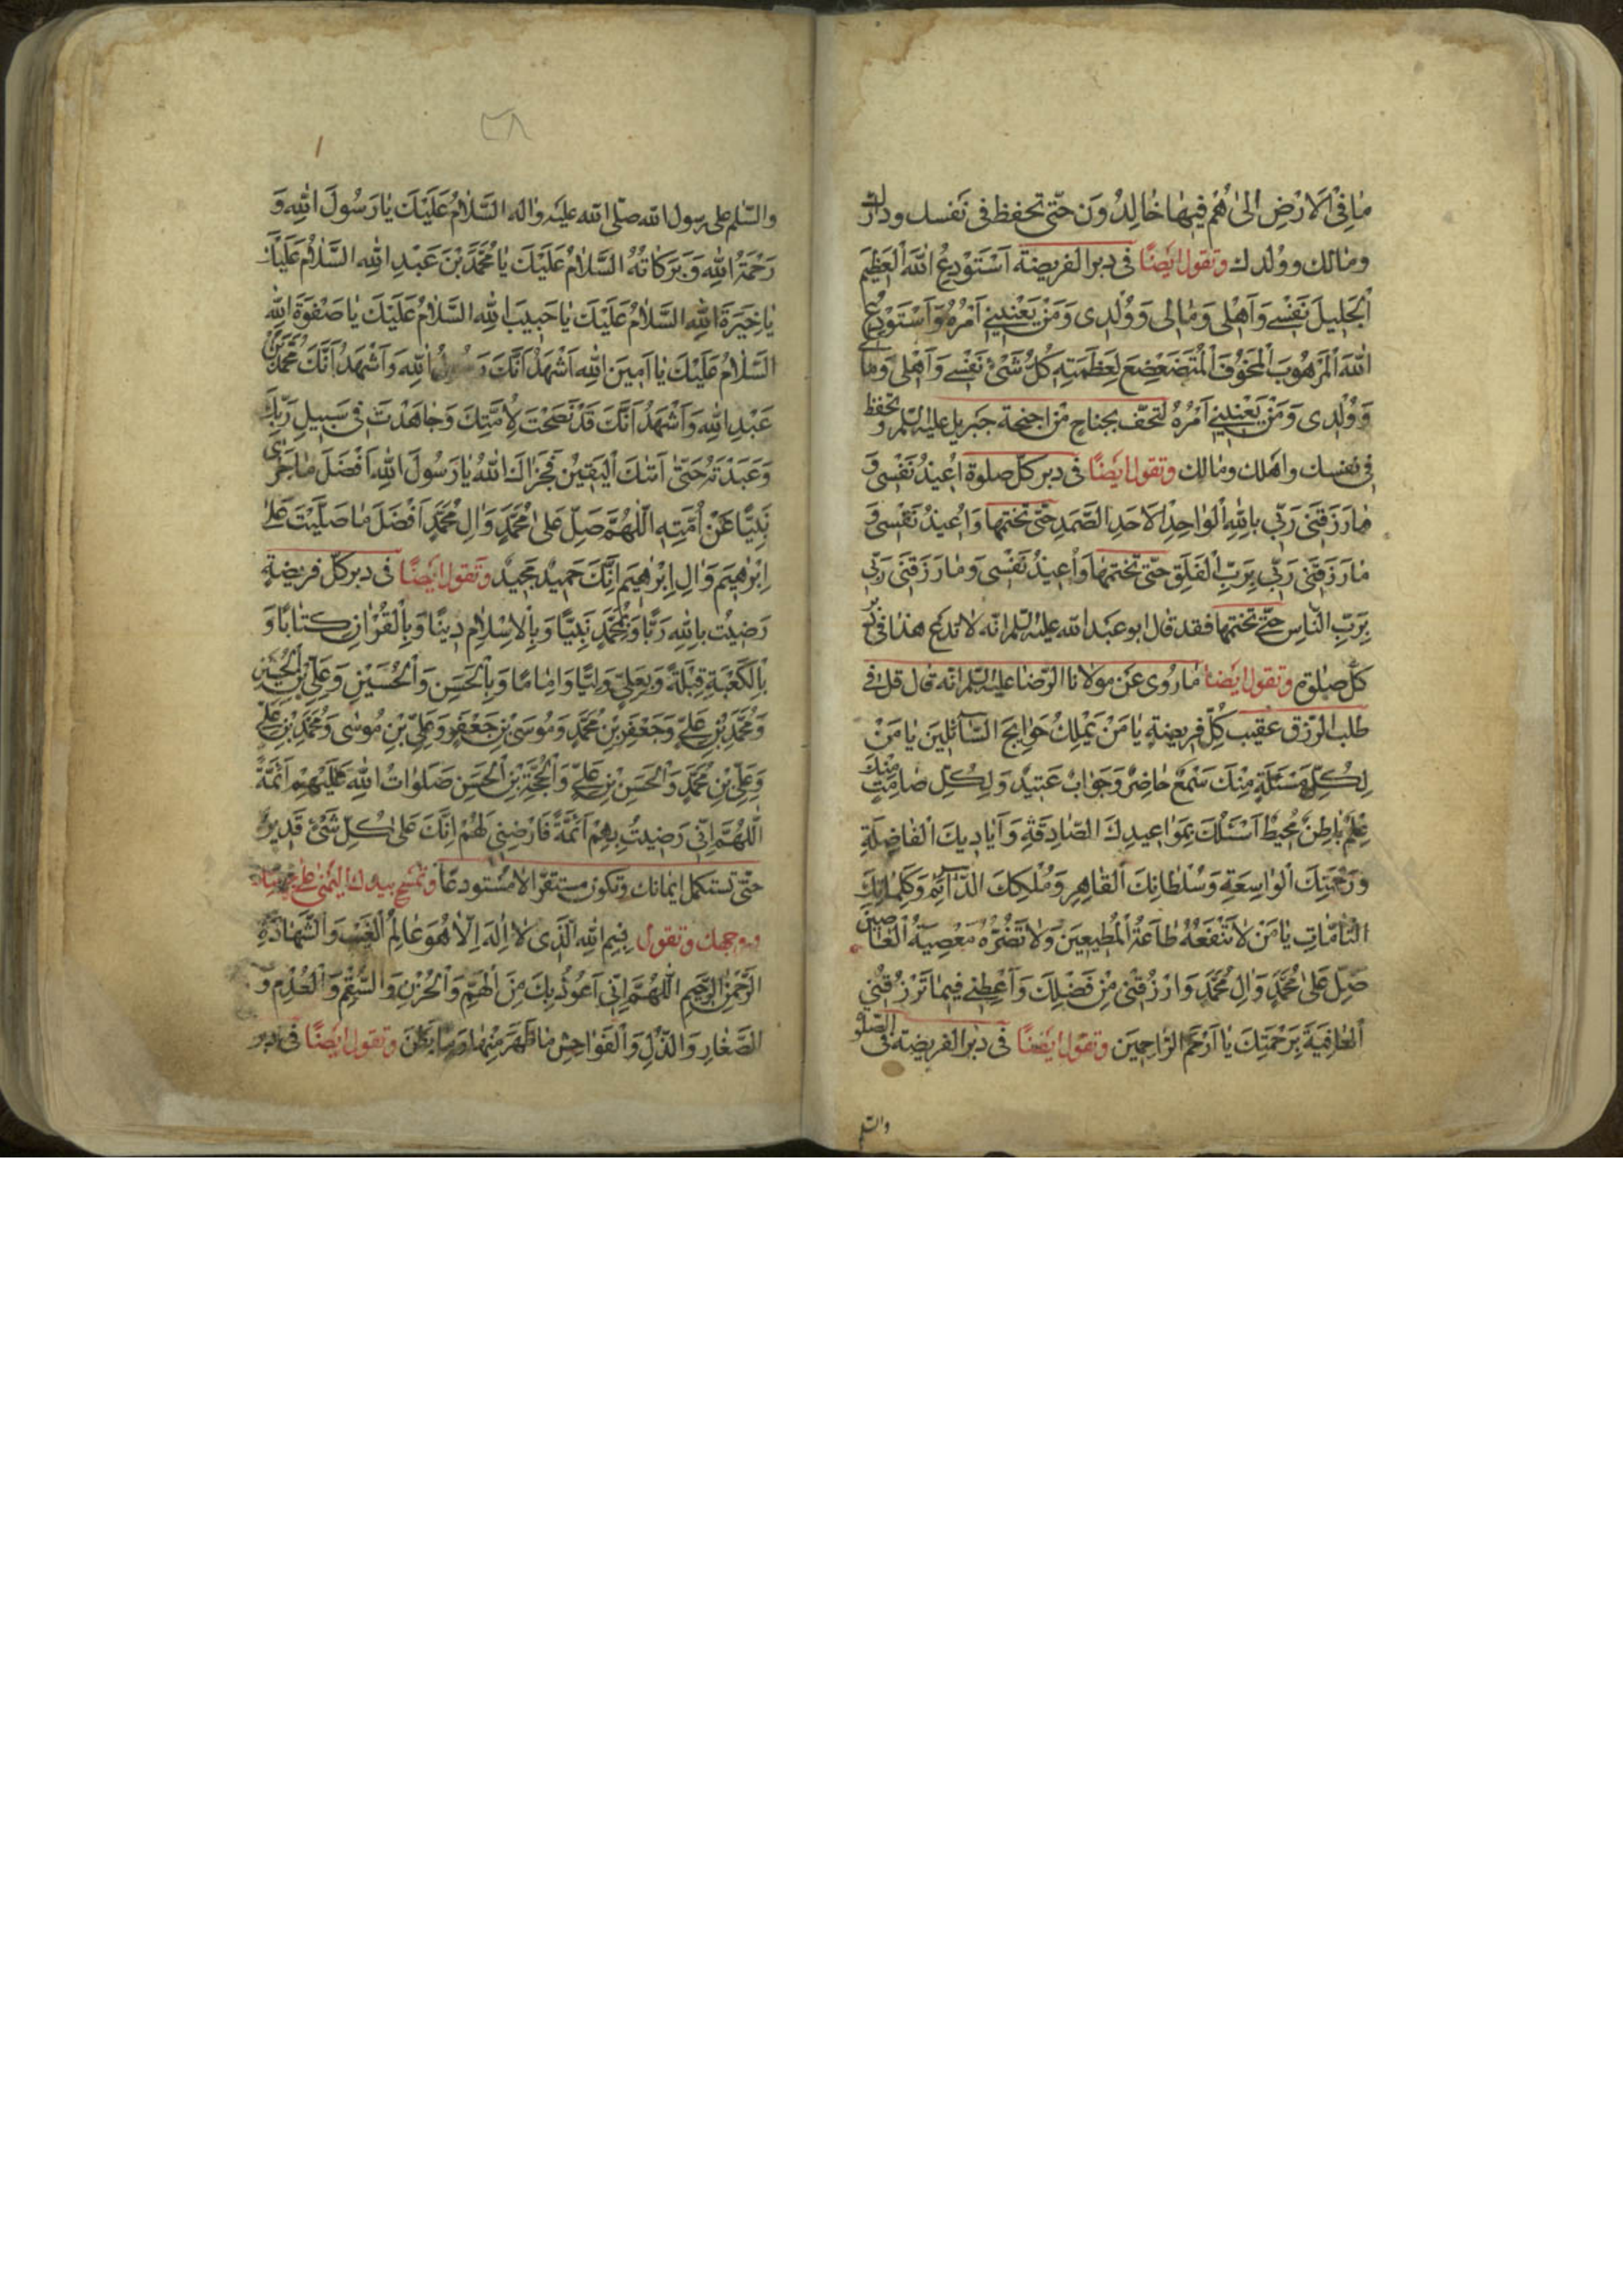 مٰا فِی الْاَرْضِ الیٰ هُمْ فیهٰا خٰالِدُونَ حتّی تحفظ فی نَفسك ودارك
ومٰالك ووُلدِك وتقول ایَضًا فی دبر الفریضة اَسْتَوْدِعُ اللهَ الْعَظیمَ
الْجَلیلَ نَفْسی وَاَهْلی وَمٰالی وَوُلْدِی وَمَنْ یَعْنینی اَمْرُهُ وَاَسْتَوْدِعُ
اللهَ الْمَرْهُوبَ الْمَخُوفَ الْمُتَضَعْضِعَ لِعَظَمَتِهِ كُلُّ شَیْءٍ نَفْسی وَاَهْلی وَمٰالی
وَوُلْدِی وَمَنْ یَعْنینی اَمْرُهُ لتحّف بجناحٍ مْن اجنحة جَبریل علیه السّلم وتحفظ
فی نفسك واهلك ومٰالك وتقول ایضًا فی دبر كلّ صلوة اُعیذُ نَفْسی وَ
مٰا رَزَقَنی رَبّی بِاللهِ الْوٰاحِدِ الاَحَدِ الصَّمَدِ حتّی تختمها وَاُعیذُ نَفْسی وَ
مٰا رَزَقَنی رَبّی بِرَبِّ الْفَلَقِ حتّی تختمهٰا وَاُعیذُ نَفْسی وَمٰا رَزَقَنی رَبّی
بِرَبِّ النّٰاسِ حتّی تختمها فقد قٰال ابو عبَد الله علیه السّلم انّه لا تدَع هذا فی دبر
كلّ صلوة وتقول ایضًا مٰا رُوی عَن مولانا الرّضٰا علیه السّلم انّه قٰال قل فی
طلب الرّزق عقیب كلّ فریضةٍ یٰا مَنْ یَمْلِكُ حَوٰائِجَ السّٰآئِلینَ یٰا مَنْ
لِكُلِّ مَسْئَلَةٍ مِنْكَ سَمْعٌ حٰاضِرٌ وَجَوٰابٌ عَتیدٌ وَلِكُلِّ صٰامِتٍ مِنْكَ
عِلْمٌ بٰاطِنٌ مُحیطٌ اَسْئَلُكَ بِمَوٰاعیدِكَ الصّٰادِقَةِ وَاَیٰادیكَ الْفٰاضِلَةِ
وَرَحْمَتِكَ الْوٰاسِعَةِ وَسُلْطٰانِكَ الْقٰاهِرِ وَمُلْكِكَ الدّٰآئِمِ وَكَلِمٰاتِكَ
التّٰامّٰاتِ یٰا مَنْ لاٰ تَنْفَعُهُ طٰاعَةُ الْمُطیعینَ وَلاٰ تَضُرُّهُ مَعْصِیَةُ الْعٰاصینَ
صَلِّ عَلیٰ مُحَمَّدٍ وَاٰلِ مُحَمَّدٍ وَارْزُقْنی مِنْ فَضْلِكَ وَاَعْطِنی فیمٰا تَرْزُقُنی
الْعٰافِیَةَ بِرَحْمَتِكَ یٰا اَرْحَمَ الرّٰاحِمینَ وتقول ایضًا فی دبر الفریضة فی الصّلو
والسّلم
٢٨
والسّلم علی رسول الله صلّی الله علیه واٰله السَّلاٰمُ عَلَیْكَ یٰا رَسُولَ اللهِ وَ
رَحْمَةُ اللهِ وَبَرَكٰاتُهُ السَّلاٰمُ عَلَیْكَ یٰا مُحَمَّدَ بْنَ عَبْدِ اللهِ السَّلاٰمُ عَلَیْكَ
یٰا خِیَرَةَ اللهِ السَّلاٰمُ عَلَیْكَ یٰا حَبیبَ اللهِ السَّلاٰمُ عَلَیْكَ یٰا صَفْوَةَ اللهِ
السَّلاٰمُ عَلَیْكَ یٰا اَمینَ اللهِ اَشْهَدُ اَنَّكَ رَسُولُ اللهِ وَاَشْهَدُ اَنَّكَ مُحَمَّدُ بْنُ
عَبْدِ اللهِ وَاَشْهَدُ اَنَّكَ قَدْ نَصَحْتَ لِاُمَّتِكَ وَجٰاهَدْتَ فی سَبیلِ رَبِّكَ
وَعَبَدْتَهُ حَتّیٰ اَتٰكَ الْیَقینُ فَجَزٰاكَ اللهُ یٰا رَسُولَ اللهِ اَفْضَلَ مٰا جَزیٰ
نَبِیًّا عَنْ اُمَّتِهِ اَللّٰهُمَّ صَلِّ عَلیٰ مُحَمَّدٍ وَاٰلِ مُحَمَّدٍ اَفْضَلَ مٰا صَلَّیْتَ عَلیٰ
اِبْرٰهیمَ وَاٰلِ اِبْرٰهیمَ اِنَّكَ حَمیدٌ مَجیدٌ وتَقول ایَضًا فی دبر كلّ فریضةٍ
رَضیتُ بِاللهِ رَبًّا وَبِمُحَمَّدٍ نَبِیًّا وَبِالْاِسْلاٰمِ دینًا وَبِالْقُرْاٰنِ كتٰابًا وَ
بِالْكَعْبَةِ قِبْلَةً وَبِعَلِیٍّ وَلِیًّا وَاِمٰامًا وَبِالْحَسَنِ وَالْحُسَیْنِ وَعَلِیِّ بْنِ الْحُسَیْنِ
وَمُحَمَّدِ بْنِ عَلِیٍّ وَجَعْفَرِ بْنِ مُحَمَّدٍ وَمُوسَی بْنِ جَعْفَرٍ وَعَلِیِّ بْنِ مُوسٰی وَمُحَمَّدِ بْنِ عَلِیٍّ
وَعَلِیِّ بْنِ مُحَمَّدٍ وَالْحَسَنِ بْنِ عَلِیٍّ وَالْحُجَّةِ بْنِ الْحَسَنِ صَلَوٰاتُ اللهِ عَلَیْهِمْ اَئِمَّةً
اَللّٰهُمَّ اِنّی رَضیتُ بِهِمْ اَئِمَّةً فَارْضِنی لَهُمْ اِنَّكَ عَلیٰ كُلِّ شَیْءٍ قَدیرٌ
حتّی تستكمل ایمٰانك وتكون مستقرًّا لا مُسْتودعًا وتمسَح بیدك الیُمنی علی جبهتك
ووجهك وتقول بِسْمِ اللهِ الَّذی لاٰ اِلٰهَ اِلاّٰ هُوَ عٰالِمُ الْغَیْبِ وَالشَّهٰادَةِ
الرَّحْمٰنُ الرَّحیمُ اَللّٰهُمَّ اِنّی اَعُوذُ بِكَ مِنَ الْهَمِّ وَالْحُزْنِ وَالسُّقْمِ وَالْعُدْمِ وَ
الصَّغٰارِ وَالذُّلِّ وَالْفَوٰاحِشِ مٰا ظَهَرَ مِنْهٰا وَمٰا بَطَنَ وتقول ایضًا فی دبر